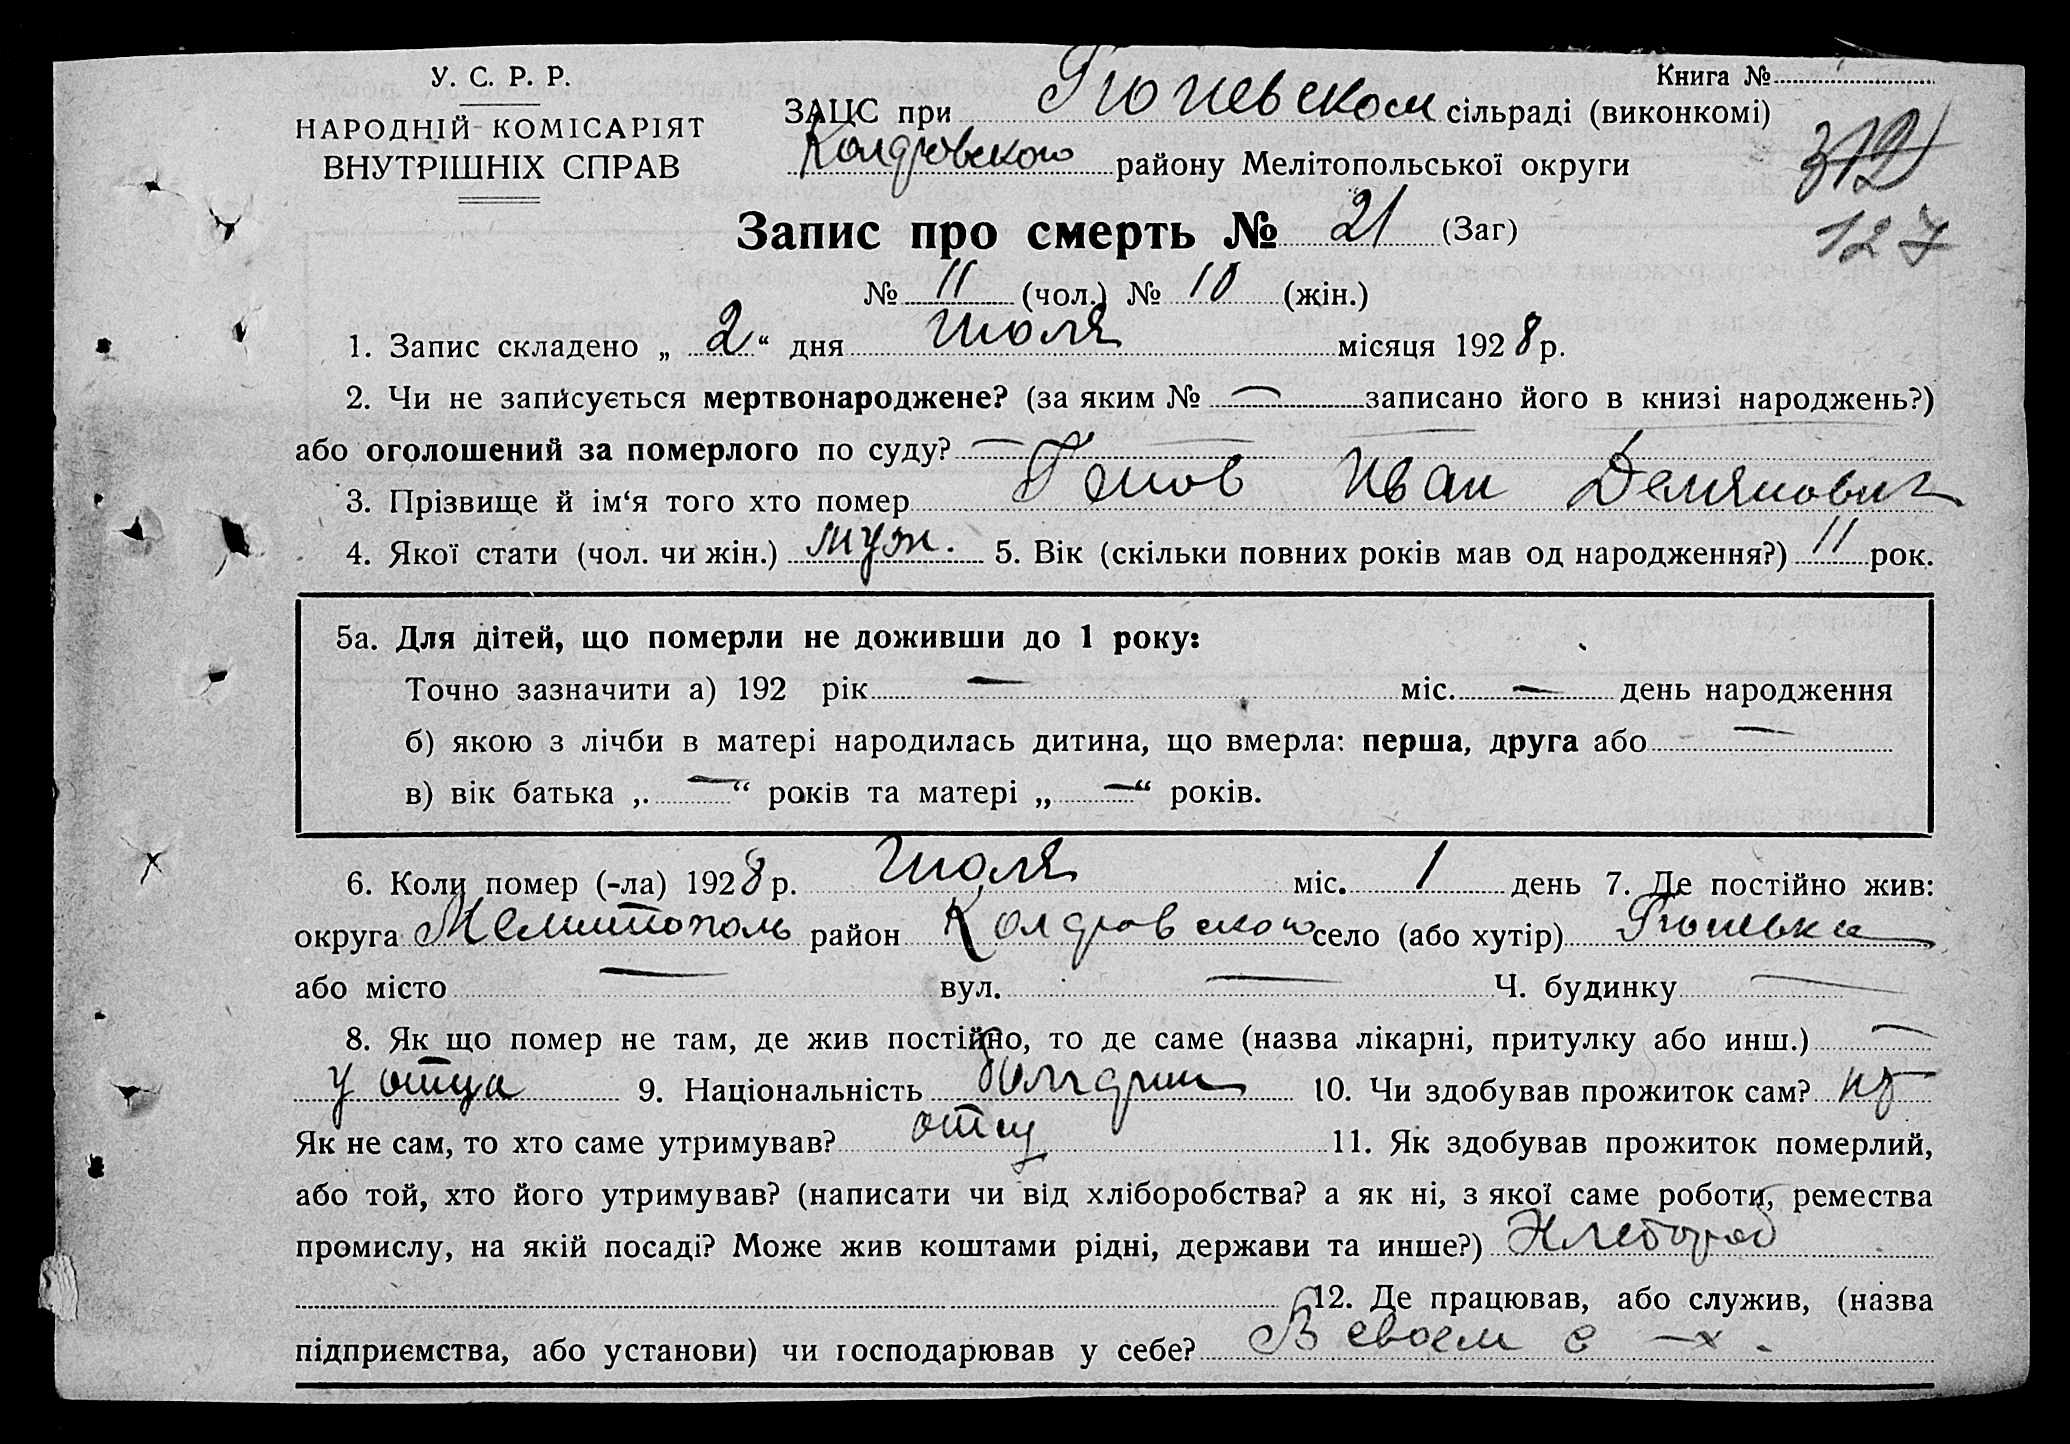 У. С. Р. Р.
НАРОДНІЙ КОМІСАРІЯТ
ВНУТРІШНІХ СПРАВ
Книга №
ЗАЦС при Гюневском сільраді (виконкомі)
Колдровского району Мелітопольської округи
312
127
Запис про смерть № 21 (Заг)
№ 11 (чол.) № 10 (жін.)
1. Запис складено „ 2 “ дня Июля місяця 1928 р.
2. Чи не записується мертвонароджене? (за яким № — записано його в книзі народжень?)
або оголошений за померлого по суду? —
3. Прізвище й ім‘я того хто помер Генов Иван Демянович
4. Якої стати (чол. чи жін.) муж. 5. Вік (скільки повних років мав од народження?) 11 рок.
5а. Для дітей, що померли не доживши до 1 року:
Точно зазначити а) 192 рік — міс. — день народження
б) якою з лічби в матері народилась дитина, що вмерла: перша, друга або —
в) вік батька „ — “ років та матері „ — “ років.
6. Коли помер (-ла) 1928 р. Июля міс. 1 день 7. Де постійно жив:
округа Мелитополь район Колдровского село (або хутір) Гюневка
або місто — вул. — Ч. будинку —
8. Як що помер не там, де жив постійно, то де саме (назва лікарні, притулку або инш.) —
у отца 9. Національність 10. Чи здобував прожиток сам?
Як не сам, то хто саме утримував? отец 11. Як здобував прожиток померлий,
або той, хто його утримував? (написати чи від хліборобства? а як ні, з якої саме роботи, ремества
промислу, на якій посаді? Може жив коштами рідні, держави та инше?) Хлебороб
12. Де працював, або служив, (назва
підприємства, або установи) чи господарював у себе? В своем с – х.